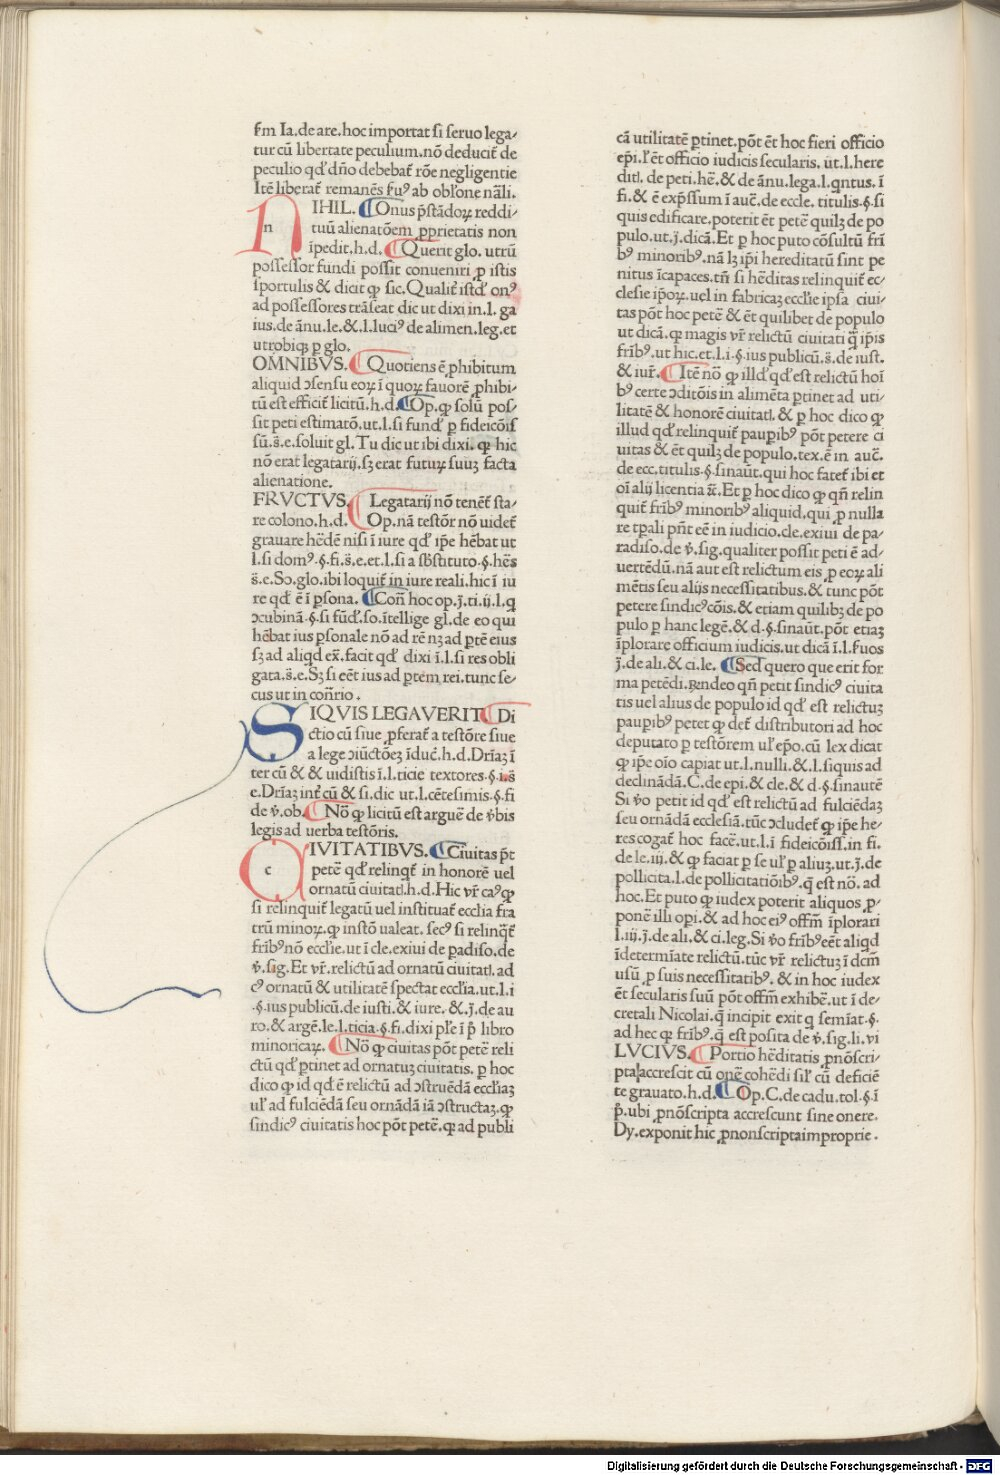 fm Ia.de are.hoc importat si seruo lega/
tur cū libertate peculium.nō deducit̄ de
peculio qd' dño debebat̄ rōe negligentie
Itē liberat̄ remanēs ſuꝰ ab obl'one nāli.
NIHIL. ¶Onus p̄stādoꝝ reddi/
tuū alienatōem ꝓprietatis non
īpedit.h.d. ¶Querit glo. utrū
possessor fundi possit conueniri ꝓ istis
sportulis & dicit ꝙ sic.Qualit̄ istd' onꝰ
ad possessores trāseat dic ut dixi in.l. ga
ius.de ānu.le.&.l.luciꝰ de alimen.leg.et
utrobiqꝫ p glo.
OMNIBVS. ¶Quotiens ē ꝓhibitum
aliquid ɔsensu eoꝝ ī quoꝝ fauorē ꝓhibi/
tū est efficit̄ licitū.h.d. ¶Op.ꝙ solū pos/
sit peti estimatō.ut.l.si fund' p fideicōis
sū.s̄.e.soluit gl. Tu dic ut ibi dixi. ꝙ hic
nō erat legatarij.sꝫ erat futuꝝ suuꝫ facta
alienatione.
FRVCTVS. ¶Legatarij nō tenet̄ sta/
re colono.h.d. ¶Op.nā testōr nō uidet̄
grauare hēdē nisi ī iure qd' ip̄e hēbat ut
l.si domꝰ.§.fi.s̄.e.et.l.si a sb̄stituto.§.hēs
s̄.e.So.glo.ibi loquit̄ in iure reali.hic ī iu
re qd' ē ī ꝑsona. ¶Con̄ hoc op.j̄.ti.ij.l.q
ɔcubinā.§.si fūd'.so.ītellige gl.de eo qui
hēbat ius ꝑsonale nō ad rē nꝫ ad ꝑtē eius
sꝫ ad aliqd ex̄.facit qd' dixi ī.l.si res obli
gata.s̄.e.Sꝫ si eēt ius ad ꝑtem rei.tunc se/
cus ut in con̄rio.
SIQVIS LEGAVERIT ¶Di
ctio cū siue ꝓferat̄ a testōre siue
a lege ɔiūctōeꝫ īduc̄.h.d.Dr̄iaꝫ ī
ter cū & & uidistis ī.l.ticie textores.§.i.s̄
e.Dr̄iaꝫ int̄ cū & si.dic ut.l.cētesimis.§.fi
de v̄.ob. ¶Nō ꝙ licitū est arguē de v̄bis
legis ad uerba testōris.
CIVITATIBVS. ¶Ciuitas pt̄
petē qd' relinqt̄ in honorē uel
ornatū ciuitatꝭ.h.d.Hic vr̄ caꝰ ꝙ
si relinquit̄ legatū uel instituat̄ ecclia fra
trū minoꝝ.ꝙ instō ualeat. secꝰ si relinqt̄
fr̄ibꝰ nō ecclie.ut ī cle.exiui de ꝑadiso.de
v̄.sig.Et vr̄.relictū ad ornatū ciuitatꝭ.ad
cꝰ ornatū & utilitatē spectat eccl'ia.ut.l.i
.§.ius publicū.de iusti.& iure. &.j̄.de au
ro.& argē.le.l.ticia.§.fi.dixi pl'e ī p̄ libro
minoricaꝝ. ¶Nō ꝙ ciuitas pōt petē reli
ctū qd' ꝑtinet ad ornatuꝫ ciuitatis. p hoc
dico ꝙ id qd' ē relictū ad ɔstruēdā eccl'iaꝫ
ul' ad fulciēdā seu ornādā iā ɔstructaꝫ.ꝙ
sindicꝰ ciuitatis hoc pōt petē.ꝙ ad publi
cā utilitatē ꝑtinet.pōt ēt hoc fieri officio
ep̄i.l'ēt officio iudicis secularis. ut.l.here
ditꝭ. de peti.hē.& de ānu.lega.l.qntus. ī
fi.& ē exp̄ssum ī auc̄.de eccle. titulis.§.si
quis edificare.poterit ēt petē quilꝫ de po
pulo.ut.j̄.dicā.Et p hoc puto cōsultū fr̄i
bꝰ minoribꝰ.nā lꝫ ip̄i hereditatū sint pe
nitus īcapaces.tn̄ si hēditas relinquit̄ ec/
clesie ip̄oꝝ.uel in fabricaꝫ eccl'ie ip̄a ciui/
tas pōt hoc petē & ēt quilibet de populo
ut dicā.ꝙ magis vr̄ relictū ciuitati q̄ ip̄is
fr̄ibꝰ.ut hic.et.l.i.§.ius publicū.s̄.de iust.
& iur̄. ¶Itē nō ꝙ illd' qd' est relictū hoī
bꝰ certe ɔditōis in alimēta ꝑtinet ad uti/
litatē & honorē ciuitatꝭ. & p hoc dico ꝙ
illud qd' relinquit̄ pauꝑibꝰ pōt petere ci
uitas & ēt quilꝫ de populo.tex.ē in auc̄.
de ecc.titulis.§.sinaūt.qui hoc fatet̄ ibi et
oī alij licentia &c̄.Et p hoc dico ꝙ qn̄ relin
quit̄ fr̄ibꝰ minoribꝰ aliquid.qui ꝓ nulla
re tꝑali pn̄t eē in iudicio.de.exiui de pa/
radiso.de v̄.sig.qualiter possit peti ē ad/
uertēdū.nā aut est relictum eis ꝓ eoꝝ ali
mētis seu alijs necessitatibus.& tunc pōt
petere sindicꝰ cōis.& etiam quilibꝫ de po
pulo p hanc legē.& d.§.sinaūt.pōt etiaꝫ
īplorare officium iudicis.ut dicā ī.l.seruos
j̄.de ali.& ci.le. ¶Sed quero que erit for
ma petēdi.Rn̄deo qn̄ petit sindicꝰ ciuita
tis uel alius de populo id qd' est relictuꝫ
pauꝑibꝰ petet ꝙ det̄ distributori ad hoc
deputato p testōrem ul' ep̄o.cū lex dicat
ꝙ ip̄e oīo capiat ut.l.nulli.&.l.siquis ad
declinādā.C.de epi.& cle.& d.§.sinautē
Si v̄o petit id qd' est relictū ad fulciēdaꝫ
seu ornādā ecclesiā.tūc ɔcludet̄ ꝙ ip̄e he/
res cogat̄ hoc facē.ut.l.i fideicōiss.in fi.
de le.iij.& ꝙ faciat p se ul' p aliuꝫ.ut.j̄.de
pollicita.l.de pollicitatiōibꝰ.q̄ est nō. ad
hoc.Et puto ꝙ iudex poterit aliquos p̄/
ponē illi opi.& ad hoc eiꝰ offm̄ īplorari
l.iij.j̄.de ali.& ci.leg.Si v̄o fr̄ibꝰ eēt aliqd
īdetermīate relictū.tūc vr̄ relictuꝫ ī dcm̄
usū ꝓ suis necessitatibꝰ. & in hoc iudex
ēt secularis suū pōt offm̄ exhibē.ut ī de/
cretali Nicolai.q̄ incipit exit q semīat.§.
ad hec ꝙ fr̄ibꝰ.q̄ est posita de v̄.sig.li.vi
LVCIVS. ¶Portio hēditatis ꝓ nō scri/
pta accrescit cū onē cohēdi sil' cū deficiē
te grauato.h.d. ¶Op.C.de cadu.tol.§.ī
p̄.ubi ꝓ nō scripta accrescunt sine onere.
Dy.exponit hic ꝓ non scripta improprie.
Digitalisierung gefördert durch die Deutsche Forschungsgemeinschaft - DFG